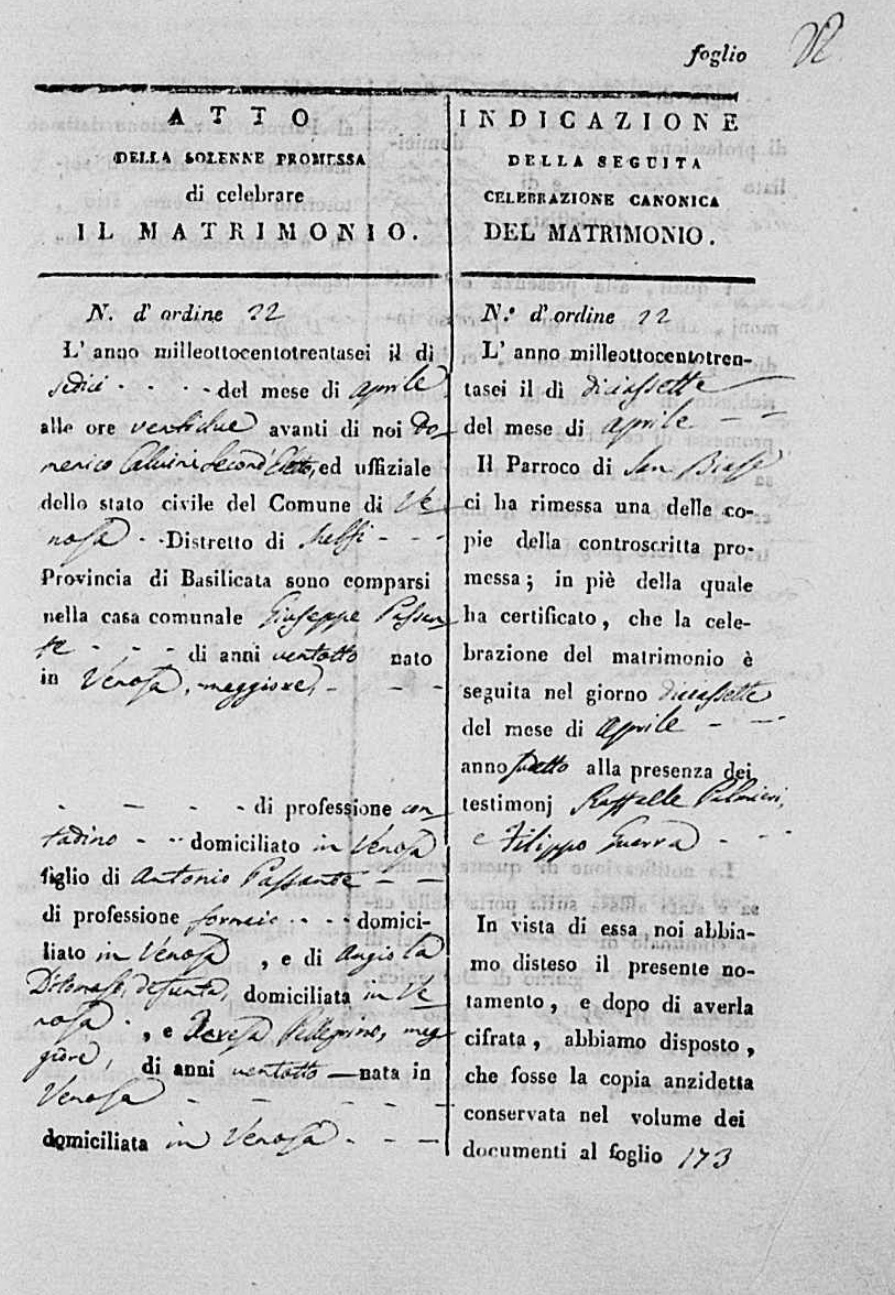 foglio
ATTO
DELLA SOLENNE PROMESSA
di celebrare
IL MATRIMONIO.
N. d'ordine 22
L'anno milleottocentotrentasei il dì
sedici - - - - del mese di aprile
alle ore ventidue avanti di noi Do-
menico Calvini Second'Eletto, ed uffiziale
dello stato civile del Comune di Ve-
nosa - - Distretto di Melfi - - -
Provincia di Basilicata sono comparsi
nella casa comunale Giuseppe Passan-
te - - - di anni ventotto nato
in Venosa, maggiore, - - -
- - - - di professione con-
tadino - - domiciliato in Venosa
figlio di Antonio Passante - -
di professione fornaio - - - domici-
liato in Venosa , e di Angiola
Ditomaso, defunta, domiciliata in Ve-
nosa - , e Teresa Pellegrino, mag-
giore, di anni ventotto — nata in
Venosa - - - - - -
domiciliata in Venosa - - -
INDICAZIONE
DELLA SEGUITA
CELEBRAZIONE CANONICA
DEL MATRIMONIO.
N.° d'ordine 22
L'anno milleottocentotren-
tasei il dì diciassette
del mese di aprile - -
Il Parroco di San Biase
ci ha rimessa una delle co-
pie della controscritta pro-
messa; in piè della quale
ha certificato, che la cele-
brazione del matrimonio è
seguita nel giorno diciassette
del mese di aprile - -
anno sudetto alla presenza dei
testimonj Raffaele Palmieri,
e Filippo Guerra - - -
In vista di essa noi abbia-
mo disteso il presente no-
tamento, e dopo di averla
cifrata, abbiamo disposto,
che fosse la copia anzidetta
conservata nel volume dei
documenti al foglio 173